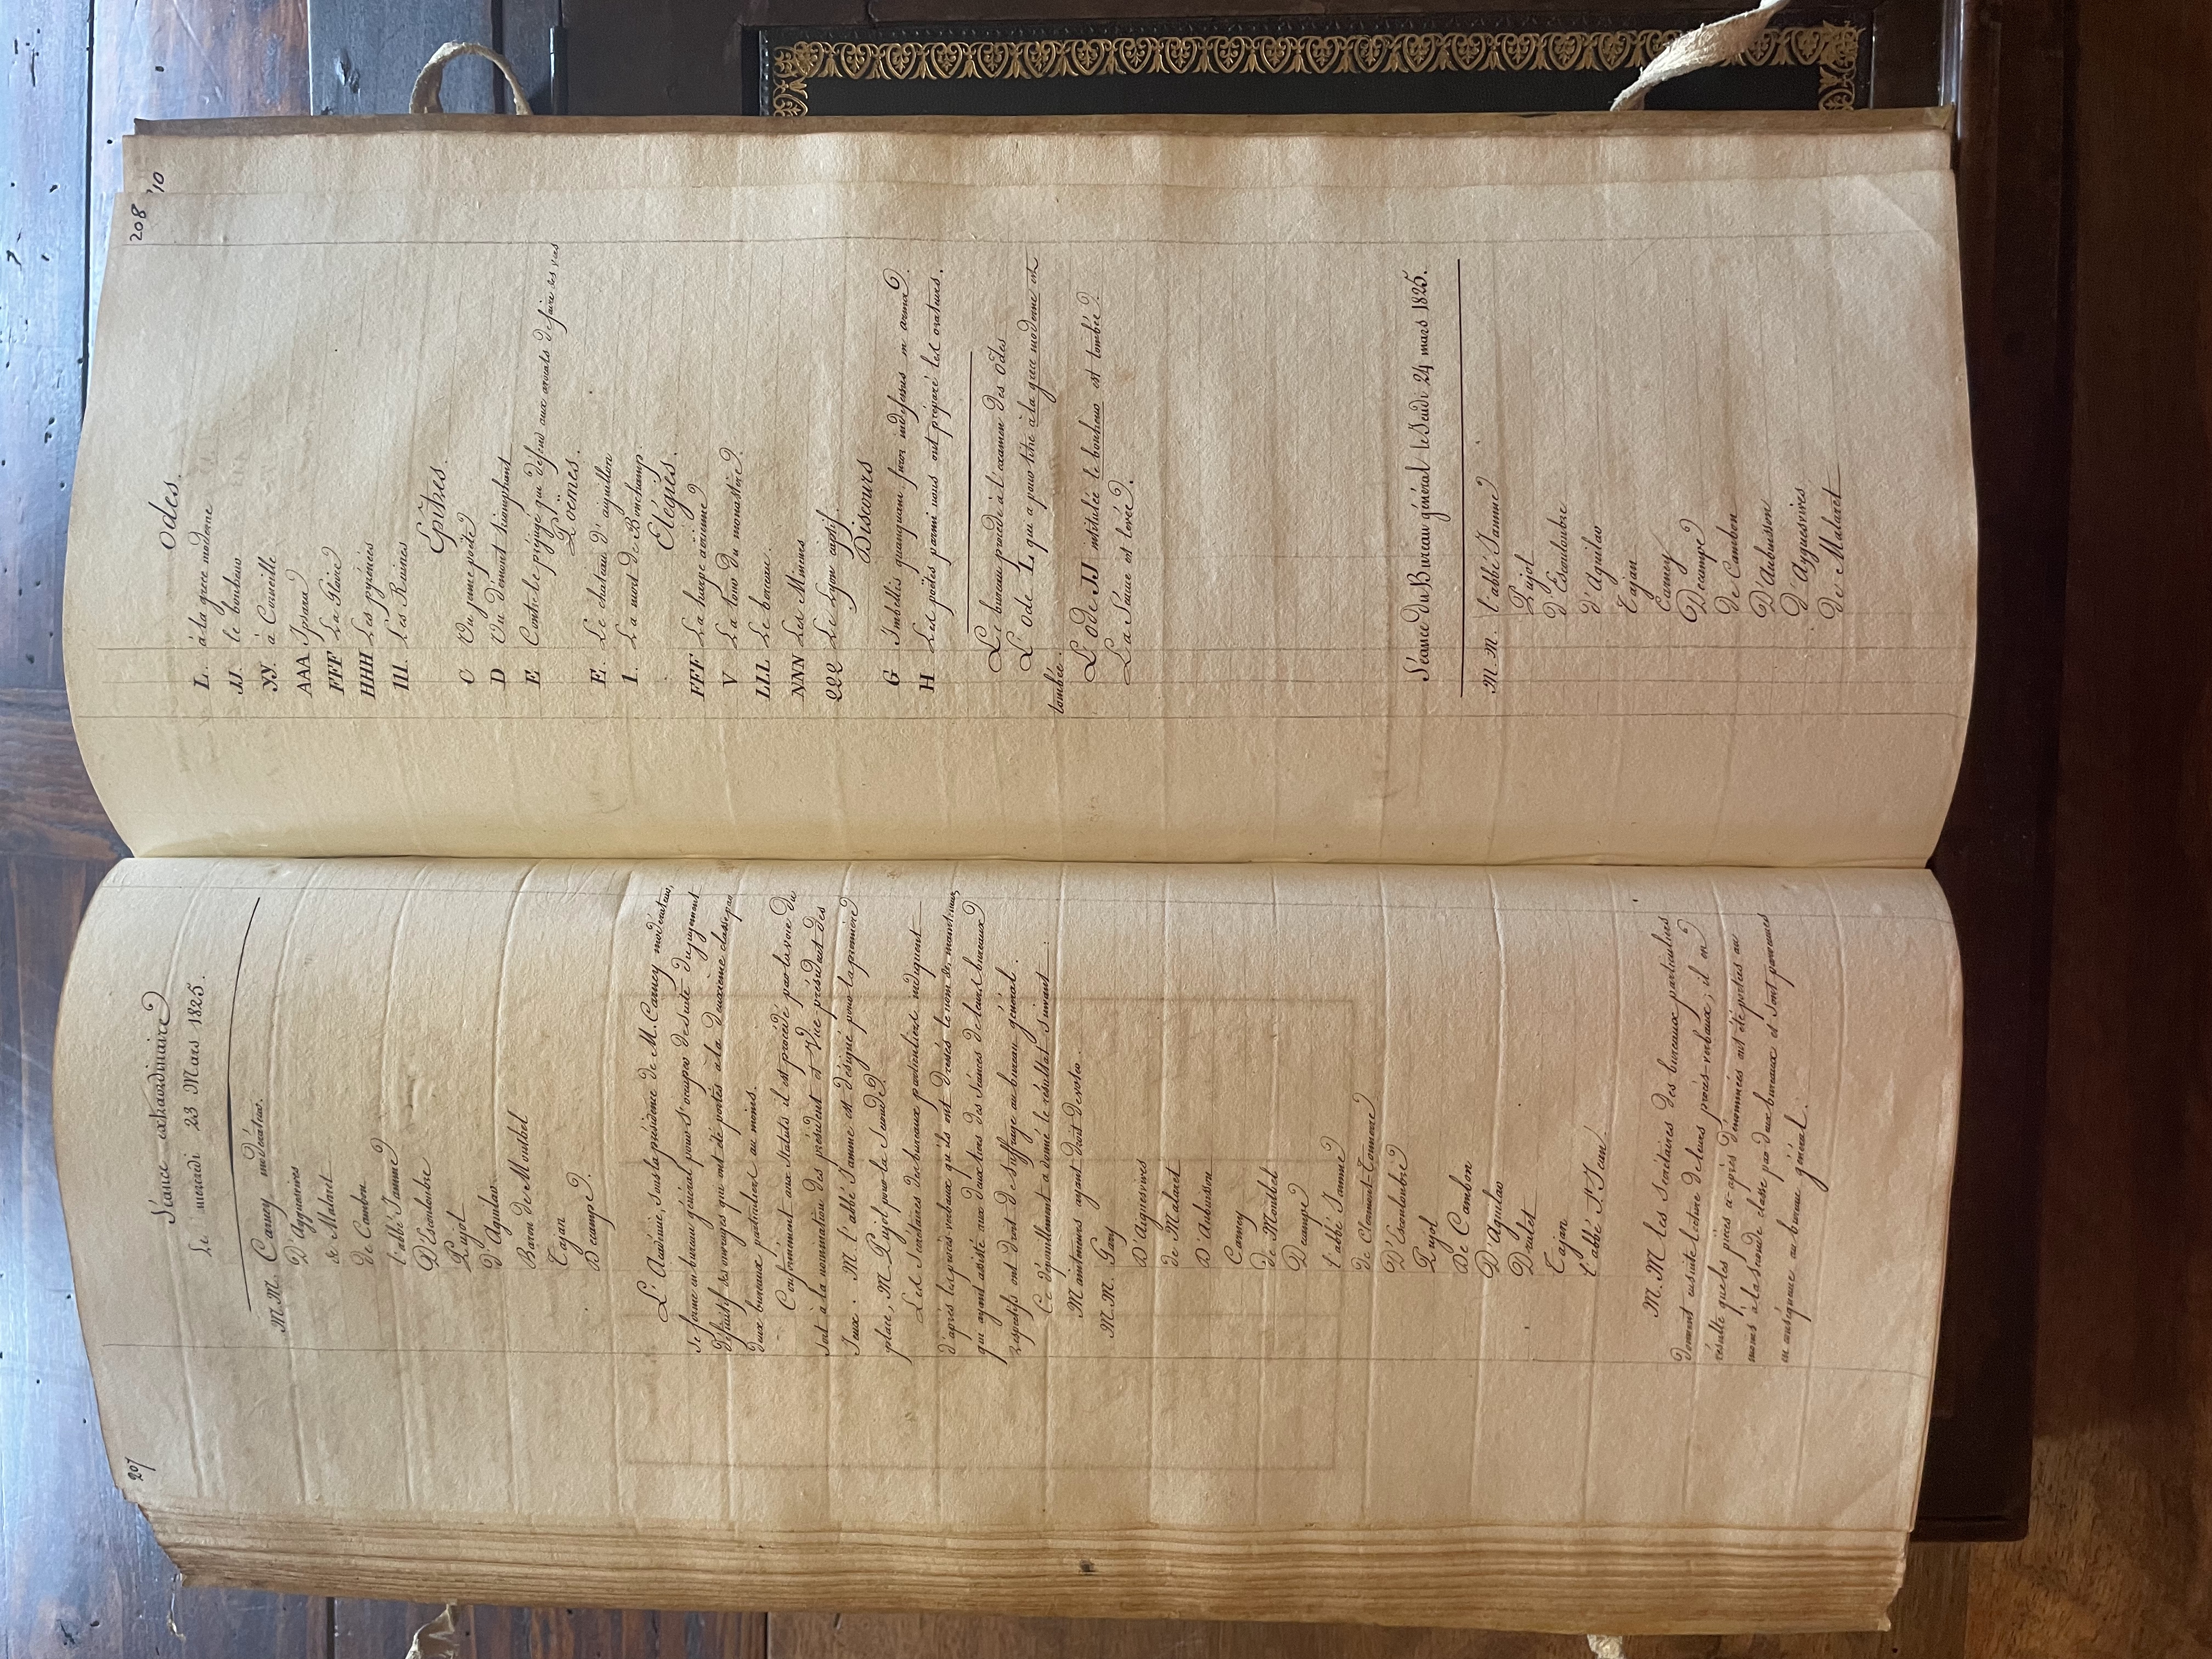 207
Séance extraordinaire
Le mercredi 23 Mars 1825.
M.M. Carney modérateur.
D'Ayguesvives
de Malaret
de Cambon
l'abbé Jamme
D'Escouloubre
Pujol
D'Aguilar
Baron de Montbel
Tajan
Decampe
L'Académie, sous la présidence de M. Carney modérateur,
se forme en bureau général pour s'occuper de suite du jugement
définitif des ouvrages qui ont été portés à la deuxième classe par
deux bureaux particuliers au moins.
Conformément aux statuts il est procédé par la voie du
sort à la nomination des président et Vice président des
Jeux. M. l'abbé Jamme est désigné pour la première
place, M. Pujol pour la Seconde.
Les Secrétaires des bureaux particuliers indiquent
d'après les procès verbaux qu'ils ont dressés le nom de, mainteneurs
qui ayant assisté aux deux tiers des Séances de leurs bureaux
respectifs ont droit de Suffrage au bureau général.
Ce dépouillement a donné le résultat Suivant:
Mainteneurs ayant droit de voter.
M.M. Gary
D'Aiguesvives
de Malaret
D'Aubuisson
Carney
de Montbel
Decampe
l'abbé Jamme
de Clermont-Tonnerre
D'Escouloubre
Pujol
De Cambon
D'Aguilar
Dralet
Tajan
l'abbé St Jean.
M.M les Secrétaires des bureaux particuliers
donnent ensuite lecture de leurs procès-verbaux; il en
résulte que les pièces ci-après dénommées ont été portées au
moins à la seconde classe par deux bureaux et Sont parvenues
en conséquence au bureau général.
208
10
Odes.
L. à la grece moderne
JJ. le bonheur
YY. à Corneille
AAA Ipsara
FFF La Gloire
HHH Les pyrénées
III. Les Ruines
Epitres.
C à un jeune poëte
D Du démont triomphant
E Contre le préjugé qui défend aux avocats de faire des vers
Poëmes.
E. Le chateau d'aiguillon
I. La mort de Bonchamp.
Elégies.
FFF La harpe
V La tour du monastère.
LLL Le berceau.
NNN Les Mineurs
QQQ Le Lyon captif.
Discours
G Imbellis quanquam furor indefensus in arma
H Les poëtes parmi nous ont préparé les orateurs.
Le bureau procède à l'examen des odes
L'ode L, qui a pour titre à la grece moderne est
tombée.
L'ode JJ intitulée le bonheur est tombée.
La Séance est levée.
Séance du Bureau général le Jeudi 24 mars 1825.
M.M. l'abbé Jamme
Pujol
d'Escouloubre
d'Aguilar
Tajan
Carney
Decampe
de Cambon
D'Aubuisson
d'Ayguesvives
de Malaret